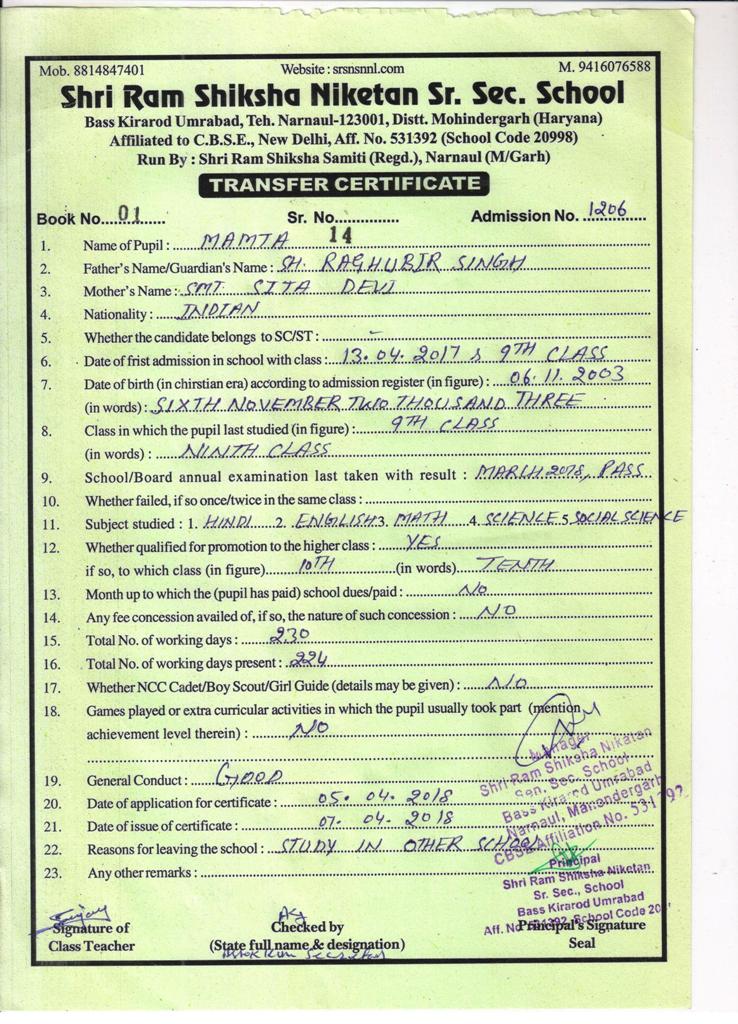 Mob. 8814847401 Website : srsnsnnl.com M. 9416076588
Shri Ram Shiksha Niketan Sr. Sec. School
Bass Kirarod Umrabad, Teh. Narnaul-123001, Distt. Mohindergarh (Haryana)
Affiliated to C.B.S.E., New Delhi, Aff. No. 531392 (School Code 20998)
Run By : Shri Ram Shiksha Samiti (Regd.), Narnaul (M/Garh)
TRANSFER CERTIFICATE
Book No. 01 Sr. No. 14 Admission No. 1206
1. Name of Pupil : MAMTA
2. Father's Name/Guardian's Name : SH. RAGHUBIR SINGH
3. Mother's Name : SMT SITA DEVI
4. Nationality : INDIAN
5. Whether the candidate belongs to SC/ST : -
6. Date of frist admission in school with class : 13.04.2017 & 9TH CLASS
7. Date of birth (in chirstian era) according to admission register (in figure) : 06.11.2003
(in words) : SIXTH NOVEMBER TWO THOUSAND THREE
8. Class in which the pupil last studied (in figure) : 9TH CLASS
(in words) : NINTH CLASS
9. School/Board annual examination last taken with result : MARCH 2018, PASS
10. Whether failed, if so once/twice in the same class :
11. Subject studied : 1. HINDI 2. ENGLISH 3. MATH 4. SCIENCE 5. SOCIAL SCIENCE
12. Whether qualified for promotion to the higher class : YES
if so, to which class (in figure) 10TH (in words) TENTH
13. Month up to which the (pupil has paid) school dues/paid : NO
14. Any fee concession availed of, if so, the nature of such concession : NO
15. Total No. of working days : 230
16. Total No. of working days present : 224
17. Whether NCC Cadet/Boy Scout/Girl Guide (details may be given) : NO
18. Games played or extra curricular activities in which the pupil usually took part (mention
achievement level therein) : NO
Manager
Shri Ram Shiksha Nikatan
Sen. Sec. School
Bass Kirarod Umrabad
Narnaul, Mahendergarh
CBSE Affiliation No.
19. General Conduct : GOOD
20. Date of application for certificate : 05.04.2018
21. Date of issue of certificate : 07.04.2018
22. Reasons for leaving the school : STUDY IN OTHER SCHOOL
23. Any other remarks :
Principal
Shri Ram Shiksha Niketan
Sr. Sec., School
Bass Kirarod Umrabad
Aff. No. 531392, School Code
Signature of
Class Teacher
Checked by
(State full name & designation)
Principal's Signature
Seal